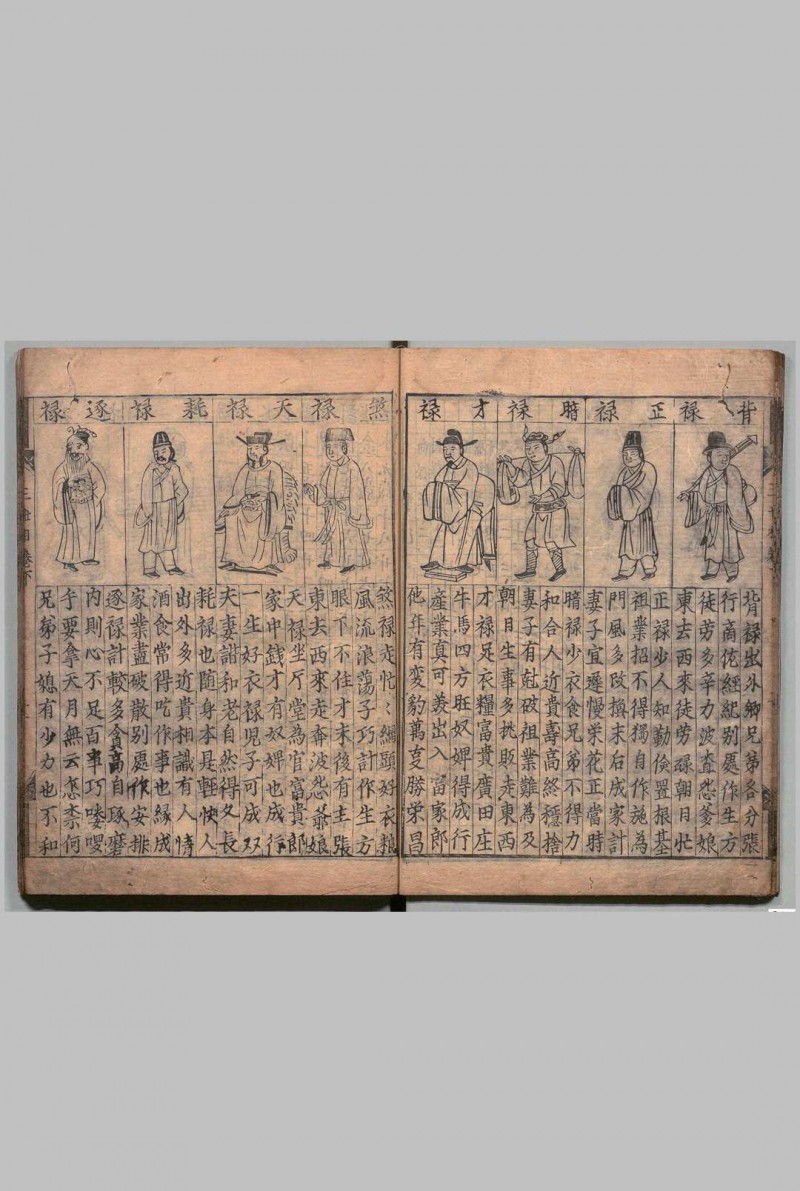 背禄
正禄
暗禄
才禄
背禄出外鄉兄弟各分張
行商佗經紀别處作生方
徒劳多辛力波查怨爹娘
東去西來徒劳碌朝日忙
正禄少人知勤俭置根基
祖業招不得獨自作施為
門風多改換末后成家計
妻子宜遲慢荣花正當時
暗禄少衣食兄弟不得力
和合人近貴壽高然穩捨
妻子有尅破祖業難為及
朝日生事多挑販走東西
才禄足衣糧富貴廣田庄
牛馬四方旺奴婢得成行
產業真可羡出入富家郎
他年有変豹萬支勝栄昌
煞禄
天禄
耗禄
逐禄
煞禄走忙〻纏頭好衣粮
風流浪蕩子巧計作生方
眼下不住才末後有主張
東去西來走奔波怨爺娘
天禄坐厅堂為官富貴郎
家中錢才有奴婢也成行
一生好衣禄児子可成双
夫妻諧和老自然得久長
耗禄也随身本是輕快人
出外多近貴相識有人情
酒食常得吃作事也縁成
家業盡破散别處作安排
逐禄計較多貪高自琢磨
内則心不足百事巧嘍啰
手要拿天月無云怎柰何
兄弟子媳有少力也不和